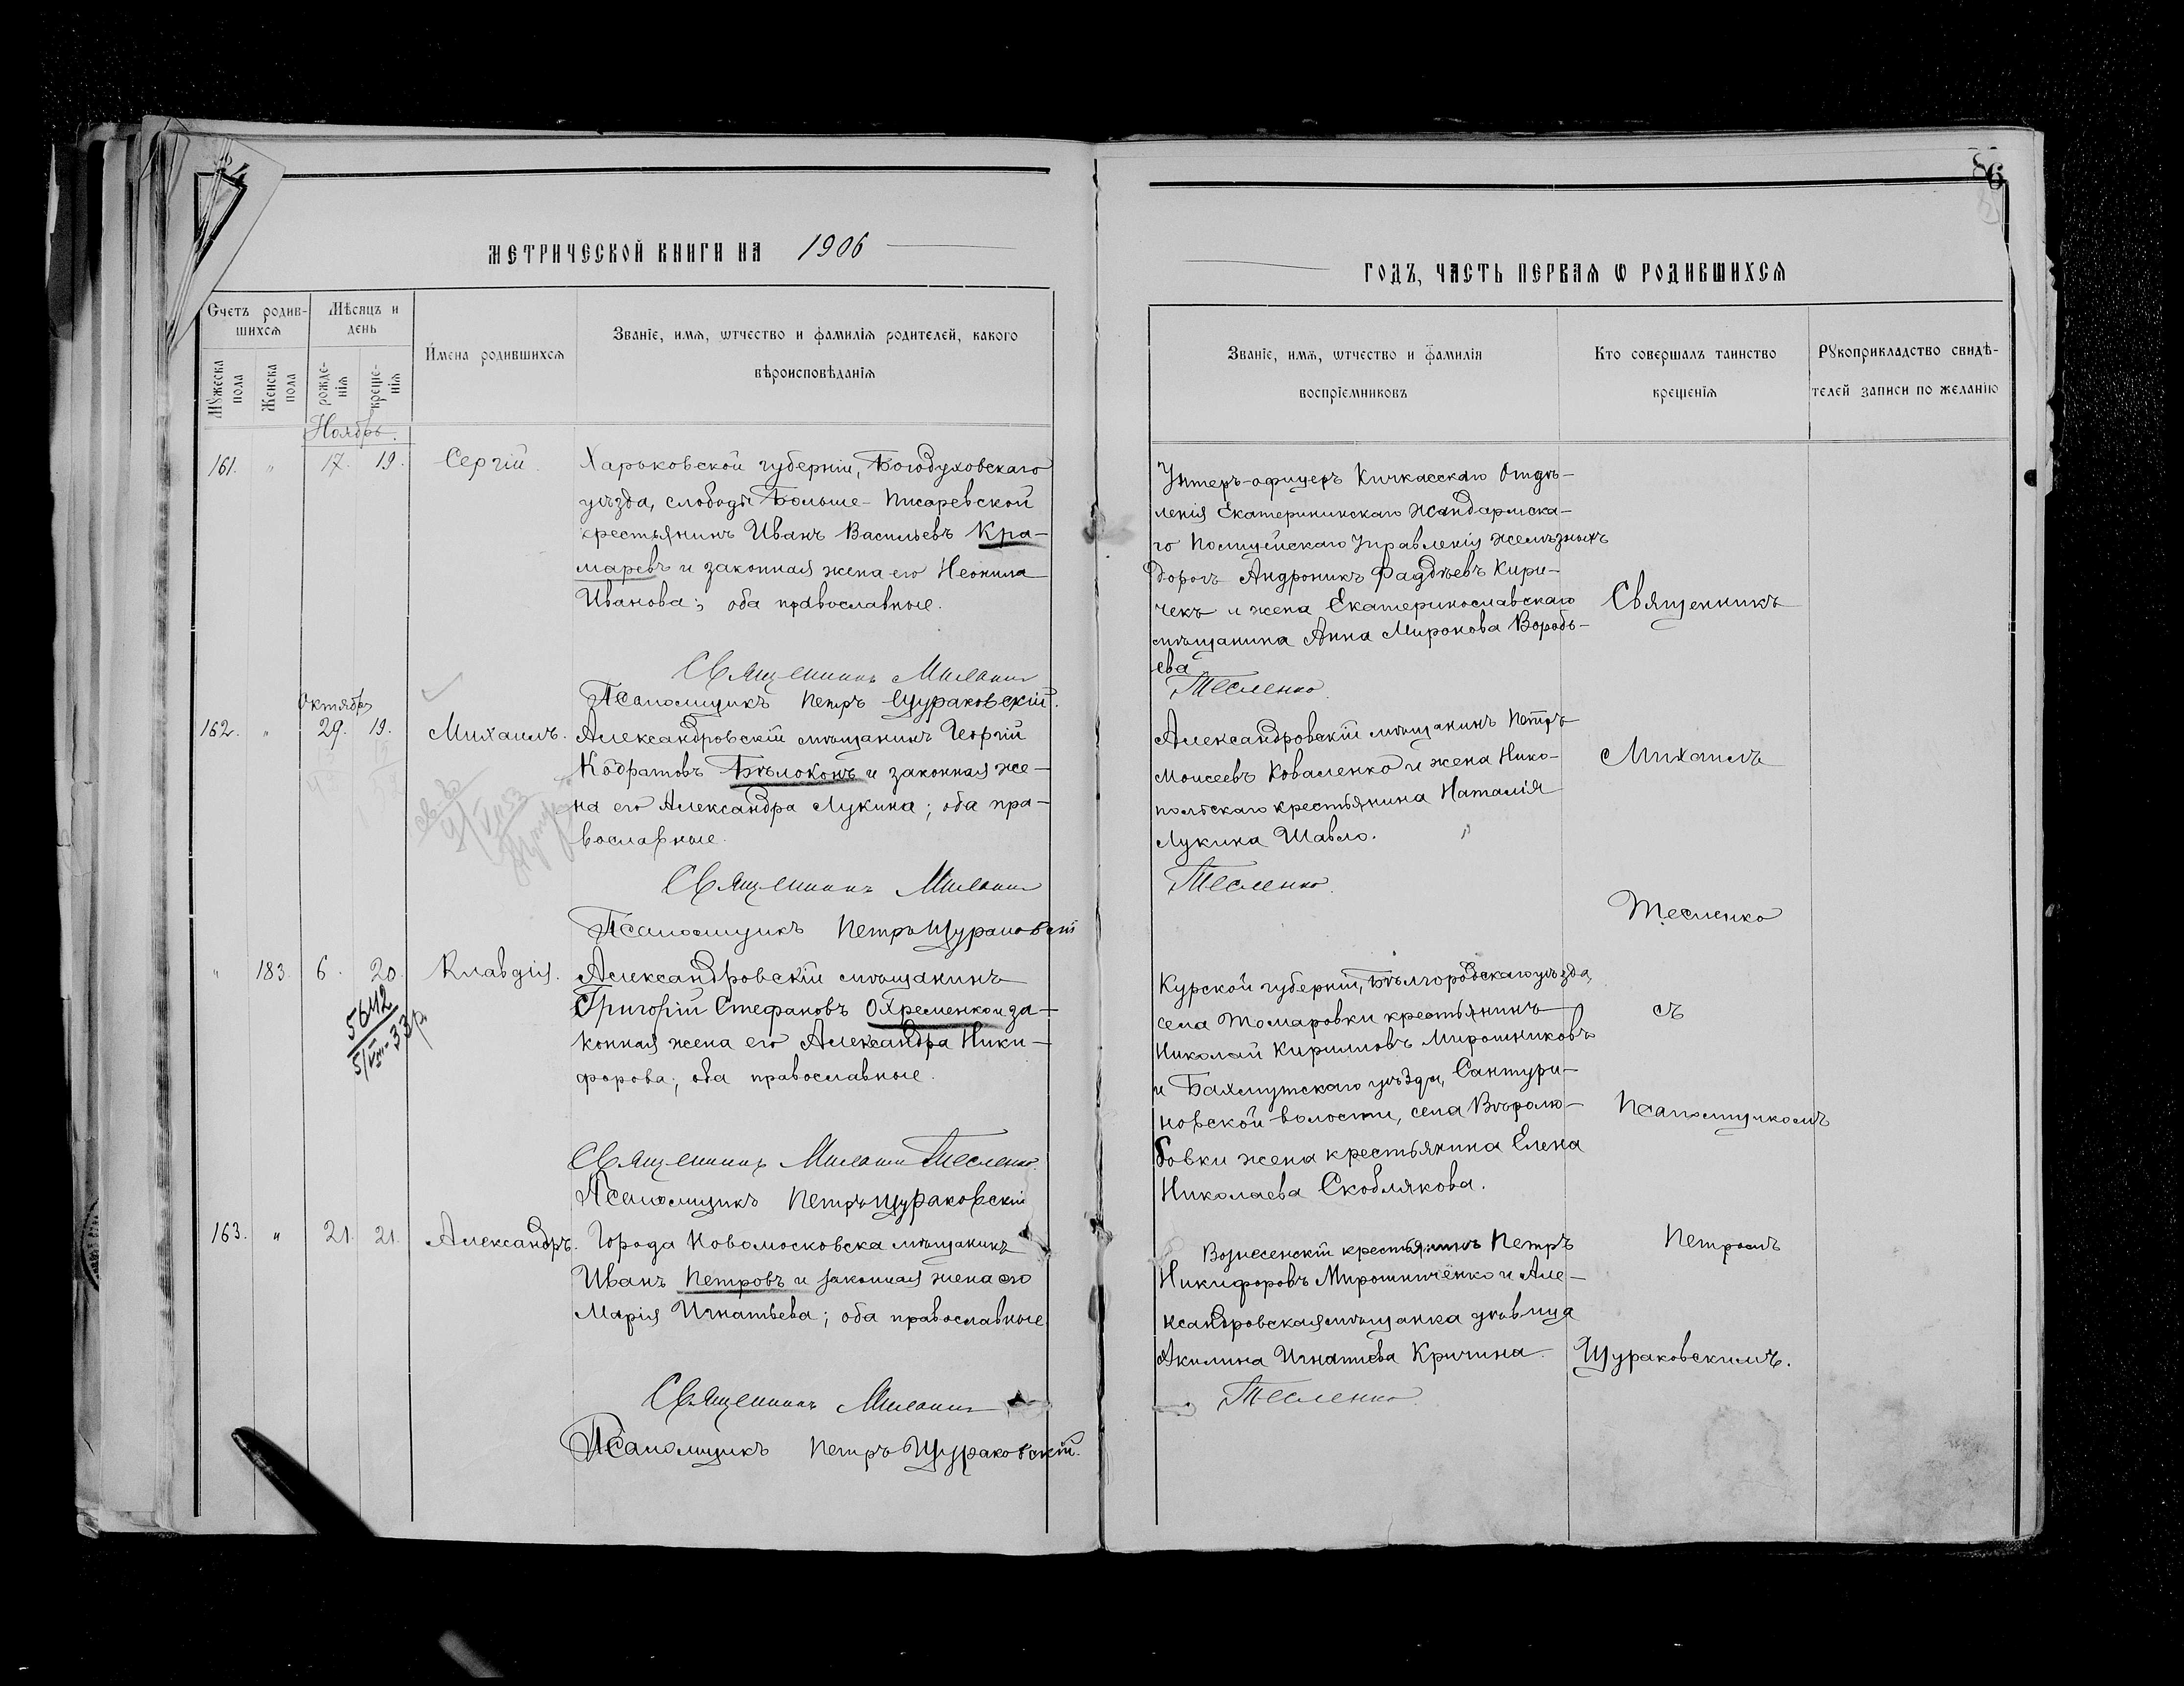 86
МЕТРИЧЕСКОЙ КНИГИ НА 1906
ГОДЪ, ЧАСТЬ ПЕРВАЯ Ѡ РОДИВШИХСЯ
Счетъ родив-
шихся
Мꙋжеска пола
Женска пола
Мѣсяцъ и
день
рожде-
нія
креще-
нія
Имена родившихся
Званіе, имя, ѡтчество и фамилія родителей, какого
вѣроисповѣданія
Званіе, имя, ѡтчество и фамилія
воспріемниковъ
Кто совершалъ таинство
крещенія
Рꙋкоприкладство свидѣ-
телей записи по желанію
Ноябрь.
161. " 17. 19. Сергій.
Харьковской губерніи, Богодуховскаго
уѣзда, слободы Больше-Писаревской
крестьянинъ Иванъ Васильевъ Кра-
маревъ и законная жена его Неонила
Иванова; оба православные.
Священникъ Михаилъ
Псаломщикъ Петръ Щураковскій.
Унтеръ-офицеръ Кичкасскаго Отдѣ-
ленія Екатерининскаго Жандармска-
го Полицейскаго Управленія желѣзныхъ
дорогъ Андроникъ Фаддѣевъ Кири-
чекъ и жена Екатеринославскаго
мѣщанина Анна Миронова Воробь-
ева
Тесленко.
Октябрь
162. " 29. 19. Михаилъ.
Александровскій мѣщанинъ Георгій
Кодратовъ Бѣлоконь и законная же-
на его Александра Лукина; оба пра-
вославные.
Священникъ Михаилъ
Псаломщикъ Петръ Щураковскій
Александровскій мѣщанинъ Петръ
Моисеевъ Коваленко и жена Нико-
польскаго крестьянина Наталія
Лукина Шавло.
Тесленко.
" 183. 6. 20. Клавдія.
5642
5/VIII-33р.
Александровскій мѣщанинъ
Григорій Стефановъ Охременко и за-
конная жена его Александра Ники-
форова; оба православные.
Священникъ Михаилъ Тесленко.
Псаломщикъ Петръ Щураковскій
Курской губерніи, Бѣлгородскаго уѣзда,
села Томаровки крестьянинъ
Николай Кирилловъ Мирошниковъ
и Бахмутскаго уѣзда, Сантури-
новской волости, села Вѣролю-
бовки жена крестьянина Елена
Николаева Скоблякова.
163. " 21. 21. Александръ.
Города Новомосковска мѣщанинъ
Иванъ Петровъ и законная жена его
Марія Игнатьева; оба православные
Священникъ Михаилъ
Псаломщикъ Петръ Щураковскій.
Вознесенскій крестьянинъ Петръ
Никифоровъ Мирошниченко и Але-
ксандровская мѣщанка дѣвица
Акилина Игнатиева Кричина.
Тесленко.
Священникъ
Михаилъ
Тесленко
съ
Псаломщикомъ
Петромъ
Щураковскимъ.